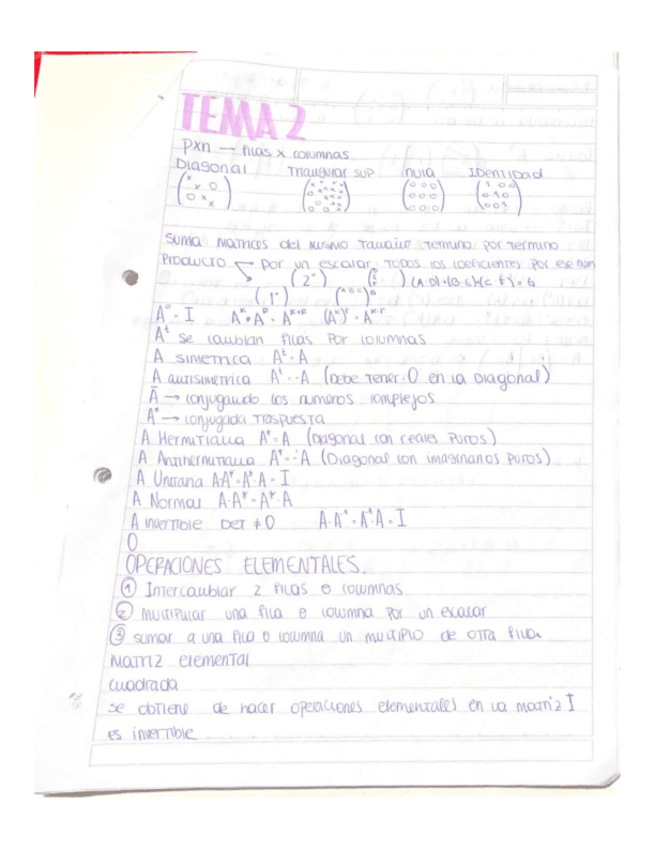 TEMA 2
pxn → filas x columnas
Diagonal Triangular sup nula Identidad
Suma: matrices del mismo tamaño termino por termino
Producto → por un escalar: todos los coeficientes por ese num
(2ª) (A·D)+(B·E)+(C·F)=G
(1ª) (A B C)
A⁰ = I Aᴷ·Aᴾ = Aᴷ⁺ᴾ (Aᴷ)ʳ = Aᴷ·ʳ
Aᵗ se cambian filas por columnas
A simetrica Aᵗ = A
A autisimetrica Aᵗ = -A (Debe tener 0 en la diagonal)
Ā → conjugando los numeros complejos
A* → conjugada traspuesta
A Hermitiana A* = A (Diagonal con reales puros)
A Antihermitiana A* = -A (Diagonal con imaginarios puros)
A Unitaria A·A* = A*·A = I
A Normal A·A* = A*·A
A invertible Det ≠ 0 A·A⁻¹ = A⁻¹·A = I
0
OPERACIONES ELEMENTALES.
① Intercambiar 2 filas o columnas
② multiplicar una fila o columna por un escalar
③ sumar a una fila o columna un multiplo de otra fila.
Matriz elemental
cuadrada
se obtiene de hacer operaciones elementales en la matriz I
es invertible